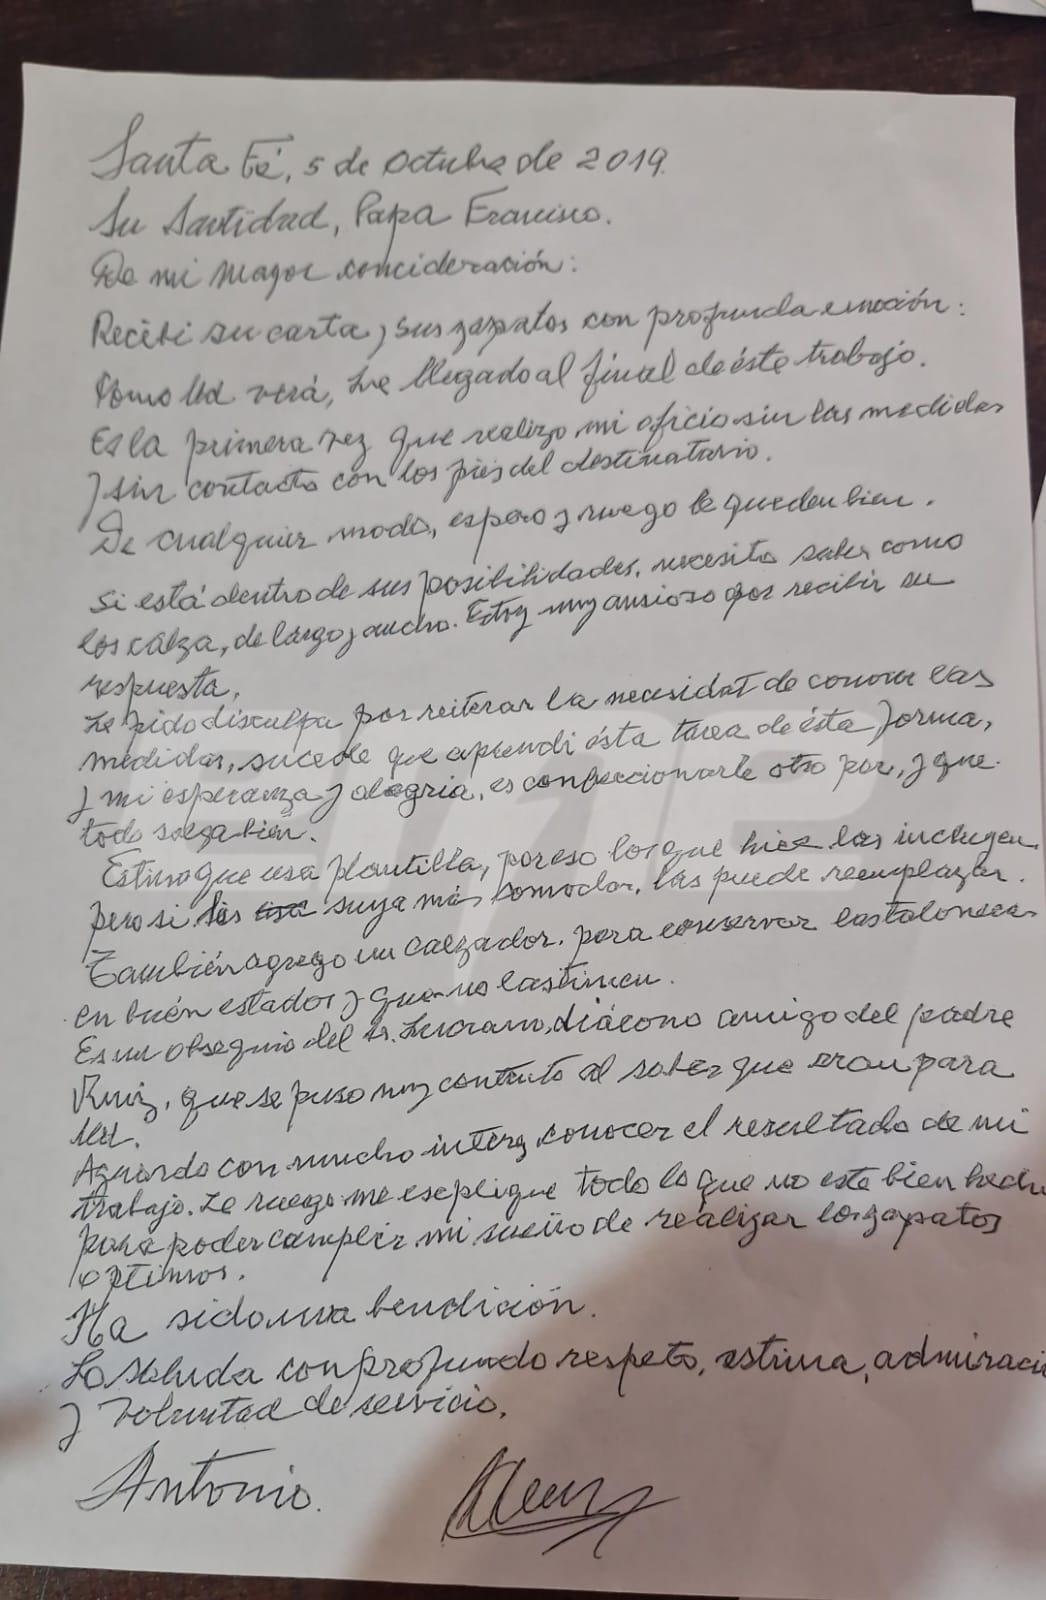 Santa Fé, 5 de Octubre de 2019.
Su Santidad, Papa Francisco.
De mi mayor concideración:
Recibí su carta y sus zapatos con profunda emoción:
Como Ud verá, he llegado al final de éste trabajo.
Es la primera vez que realizo mi oficio sin las medidas
y sin contacto con los pies del destinatario.
De cualquier modo, espero y ruego le queden bien.
Si está dentro de sus posibilidades, necesito saber como
los calza, de largo y ancho. Estoy muy ansioso por recibir su
respuesta,
Le pido disculpa por reiterar la necesidat de conocer las
medidas, sucede que aprendí ésta tarea de ésta forma,
y mi esperanza y alegría, es confeccionarle otro par, y que
todo salga bien.
Estimo que usa plantilla, por eso los que hice las incluyen
pero si las suya más comodas, las puede reemplazar.
También agrego un calzador, para conservar las taloneras
en buén estado y que no lastimen.
Es un obsequio del Sr. Luciano, diácono amigo del padre
Ruiz, que se puso muy contento al saber que eran para
Ud.
Aguardo con mucho interes conocer el resultado de mi
trabajo. Le ruego me esplique todo lo que no este bien hecho
para poder complir mi sueño de realizar los zapatos
optimos.
Ha sido una bendición.
Lo saluda con profundo respeto, estima, admiració
y voluntad de servicio.
Antonio.